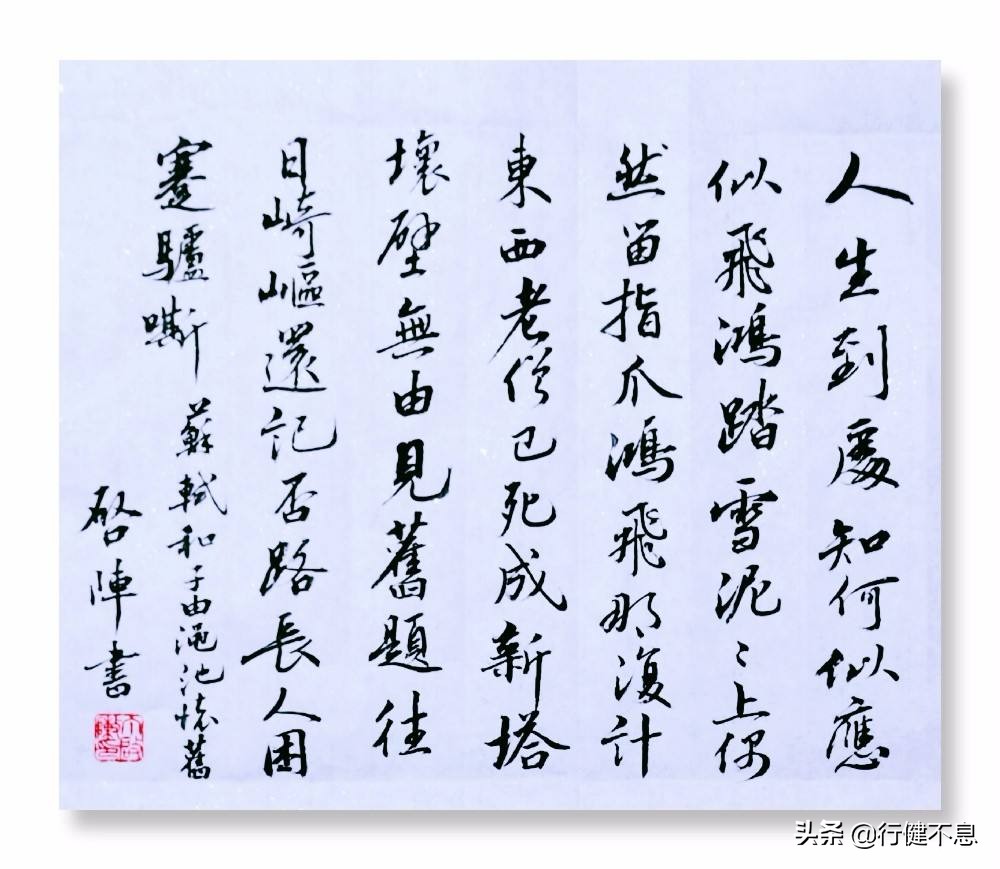 人生到處知何似應
似飛鴻踏雪泥〻上偶
然留指爪鴻飛那復計
東西老僧已死成新塔
壞壁無由見舊題往
日崎嶇還記否路長人困
蹇驢嘶 蘇軾和子由澠池懷舊
啓陣書
头条 @行健不息